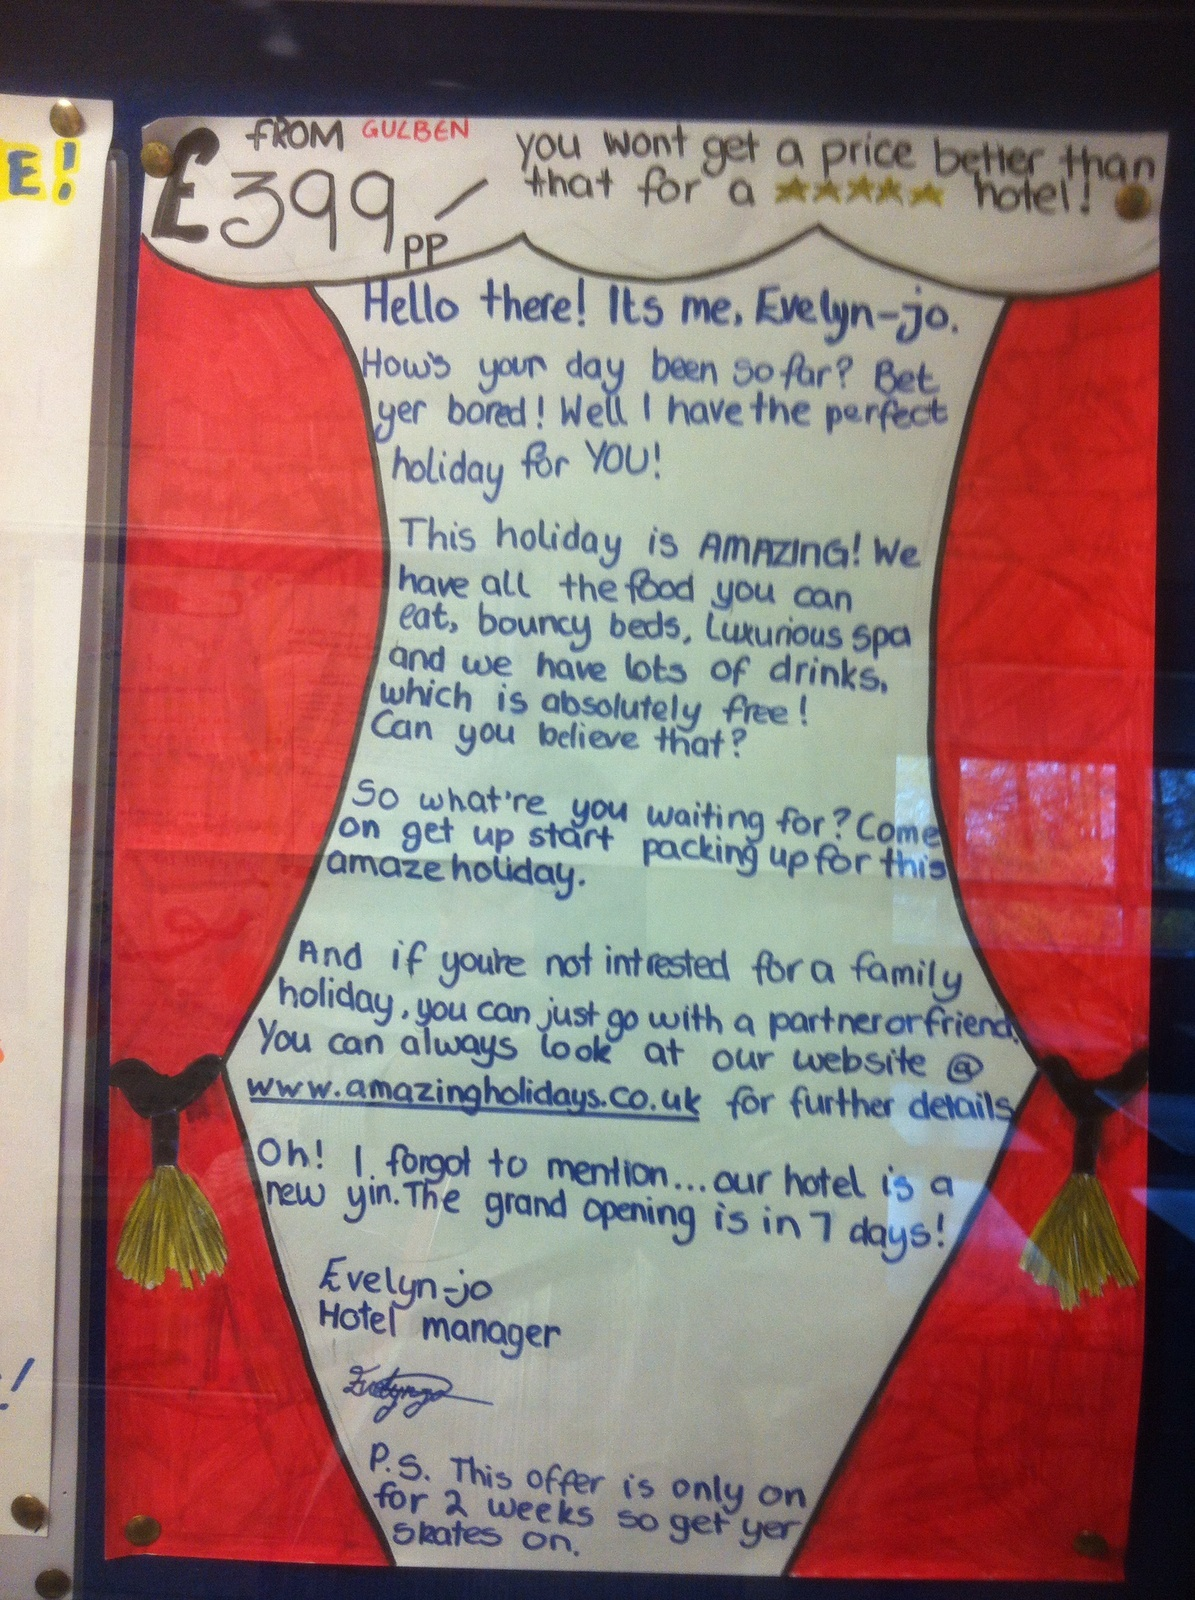 E!
FROM GULBEN
£399pp
you wont get a price better than
that for a ★★★★★ hotel!
Hello there! Its me, Evelyn-jo.
How's your day been so far? Bet
yer bored! Well I have the perfect
holiday for YOU!
This holiday is AMAZING! We
have all the food you can
eat, bouncy beds, Luxurious spa
and we have lots of drinks,
which is absolutely free!
Can you believe that?
So what're you waiting for? Come
on get up start packing up for this
amaze holiday.
And if you're not intrested for a family
holiday, you can just go with a partner or friend.
You can always look at our website @
www.amazingholidays.co.uk for further details
Oh! I forgot to mention...our hotel is a
new yin. The grand opening is in 7 days!
Evelyn-jo
Hotel manager
Evelynjo
P.S. This offer is only on
for 2 weeks so get yer
skates on.
!